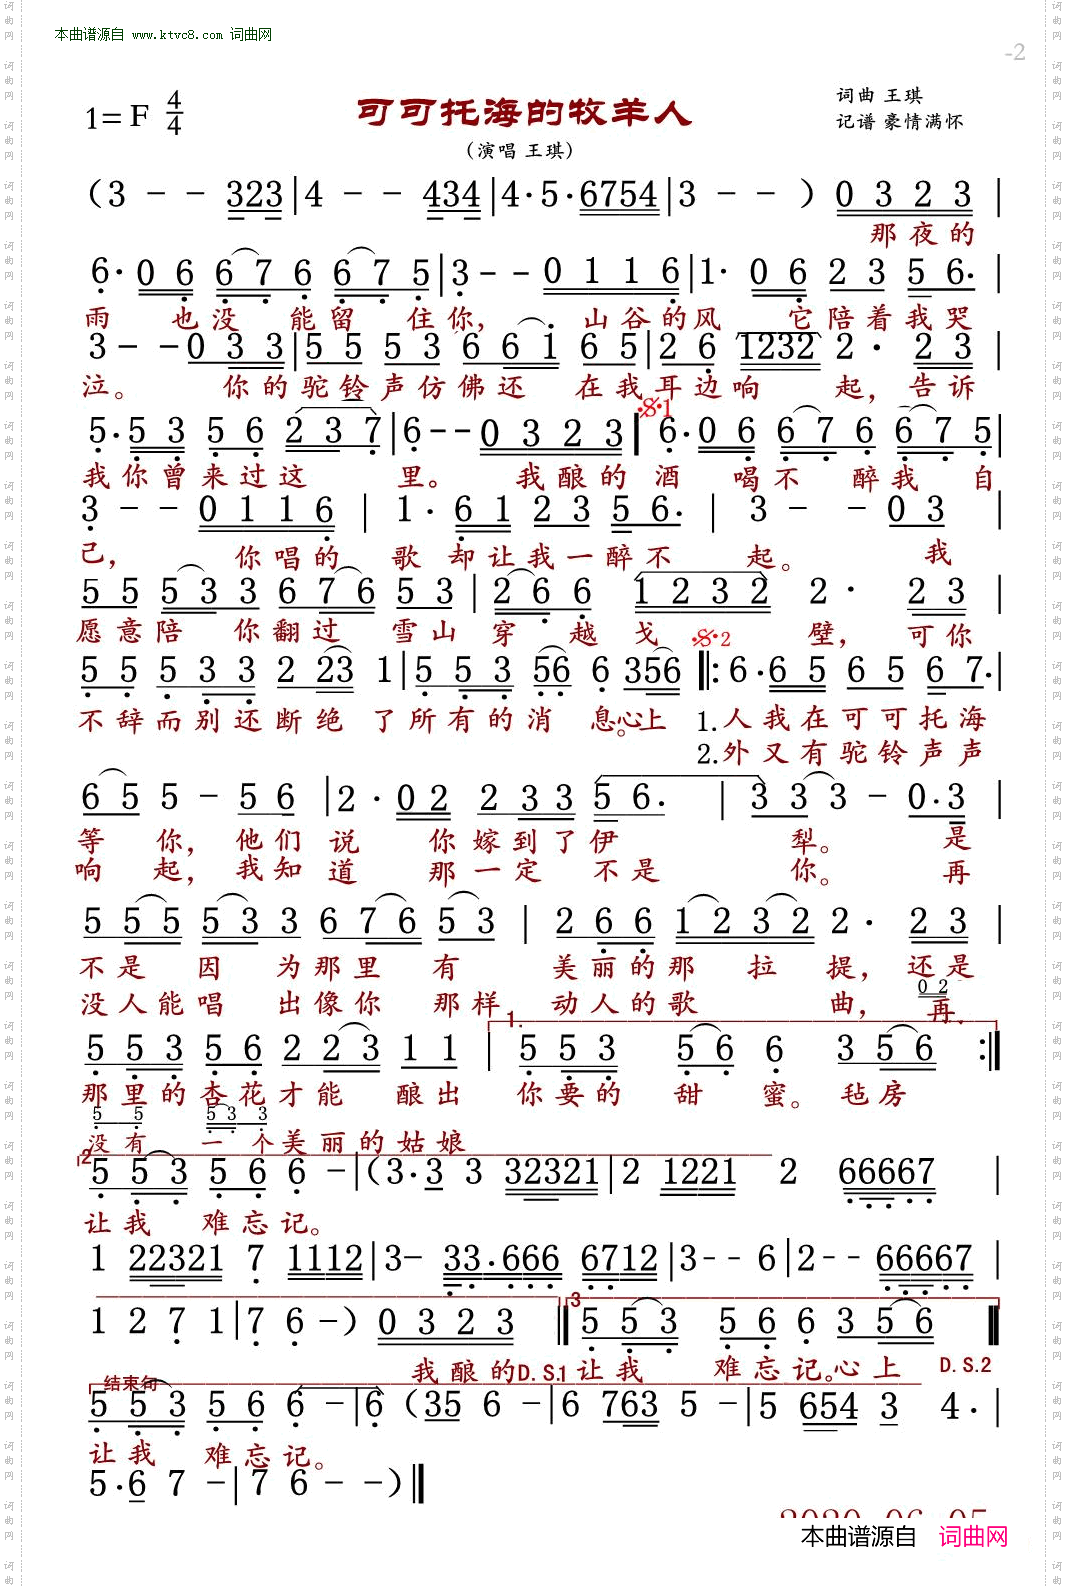 本曲谱源自 www.ktvc8.com 词曲网
-2
1= F 4/4
可可托海的牧羊人
词曲 王琪
记谱 豪情满怀
(演唱 王琪)
(3 - - 323|4 - - 434|4·5·6754|3 - - ) 0 3 2 3 |
那夜的
6· 0 6 6 7 6 6 7 5|3 - - 0 1 1 6|1· 0 6 2 3 5 6· |
雨 也没 能留 住你, 山谷的风 它陪着我哭
3 - - 0 3 3|5 5 5 3 6 6 1 6 5|2 6 1232 2 · 2 3 |
泣。 你的驼铃声仿佛还 在我耳边响 起, 告诉
5· 5 3 5 6 2 3 7|6 - - 0 3 2 3 | 𝄋1 6· 0 6 6 7 6 6 7 5|
我你曾来过这 里。 我酿的 酒 喝不 醉我 自
3 - - 0 1 1 6 | 1 · 6 1 2 3 5 6· | 3 - - 0 3 |
己, 你唱的 歌 却让我一醉不 起。 我
5 5 5 3 3 6 7 6 5 3 | 2 6 6 1 2 3 2 2 · 2 3 |
愿意陪 你翻过 雪山 穿 越 戈 壁, 可你
𝄋2
5 5 5 3 3 2 23 1|5 5 3 56 6 356 |: 6 · 6 5 6 5 6 7· |
不辞而别还断绝 了所有的消 息。心上 1.人我在可可托海
2.外又有驼铃声声
6 5 5 - 5 6 |2 · 0 2 2 3 3 5 6· | 3 3 3 - 0· 3 |
等 你, 他们 说 你嫁到了伊 犁。 是
响 起, 我知 道 那一定 不是 你。 再
5 5 5 5 3 3 6 7 6 5 3 | 2 6 6 1 2 3 2 2 · 2 3 |
不是 因 为那里 有 美丽的那 拉 提, 还是
没人能唱 出像你 那样 动人的歌 曲, 0 2 再.
1.
5 5 3 5 6 2 2 3 1 1 | 5 5 3 5 6 6 3 5 6 :|
那里的杏花才能 酿出 你要的 甜 蜜。 毡房
5 5 5 3 3
没有 一 个美丽的姑娘
2
5 5 3 5 6 6 -|(3·3 3 32321|2 1221 2 66667 |
让我 难忘记。
1 22321 7 1112|3- 33·666 6712|3-- 6|2-- 66667 |
1 2 7 1|7 6 -) 0 3 2 3 ‖ 3 5 5 3 5 6 6 3 5 6 ‖
我酿的D.S.1 让我 难忘记。心上 D.S.2
结束句
5 5 3 5 6 6 -|6 (35 6 -|6 763 5 -|5 654 3 4·|
让我 难忘记。
5·6 7 -|7 6 -)‖
本曲谱源自 词曲网